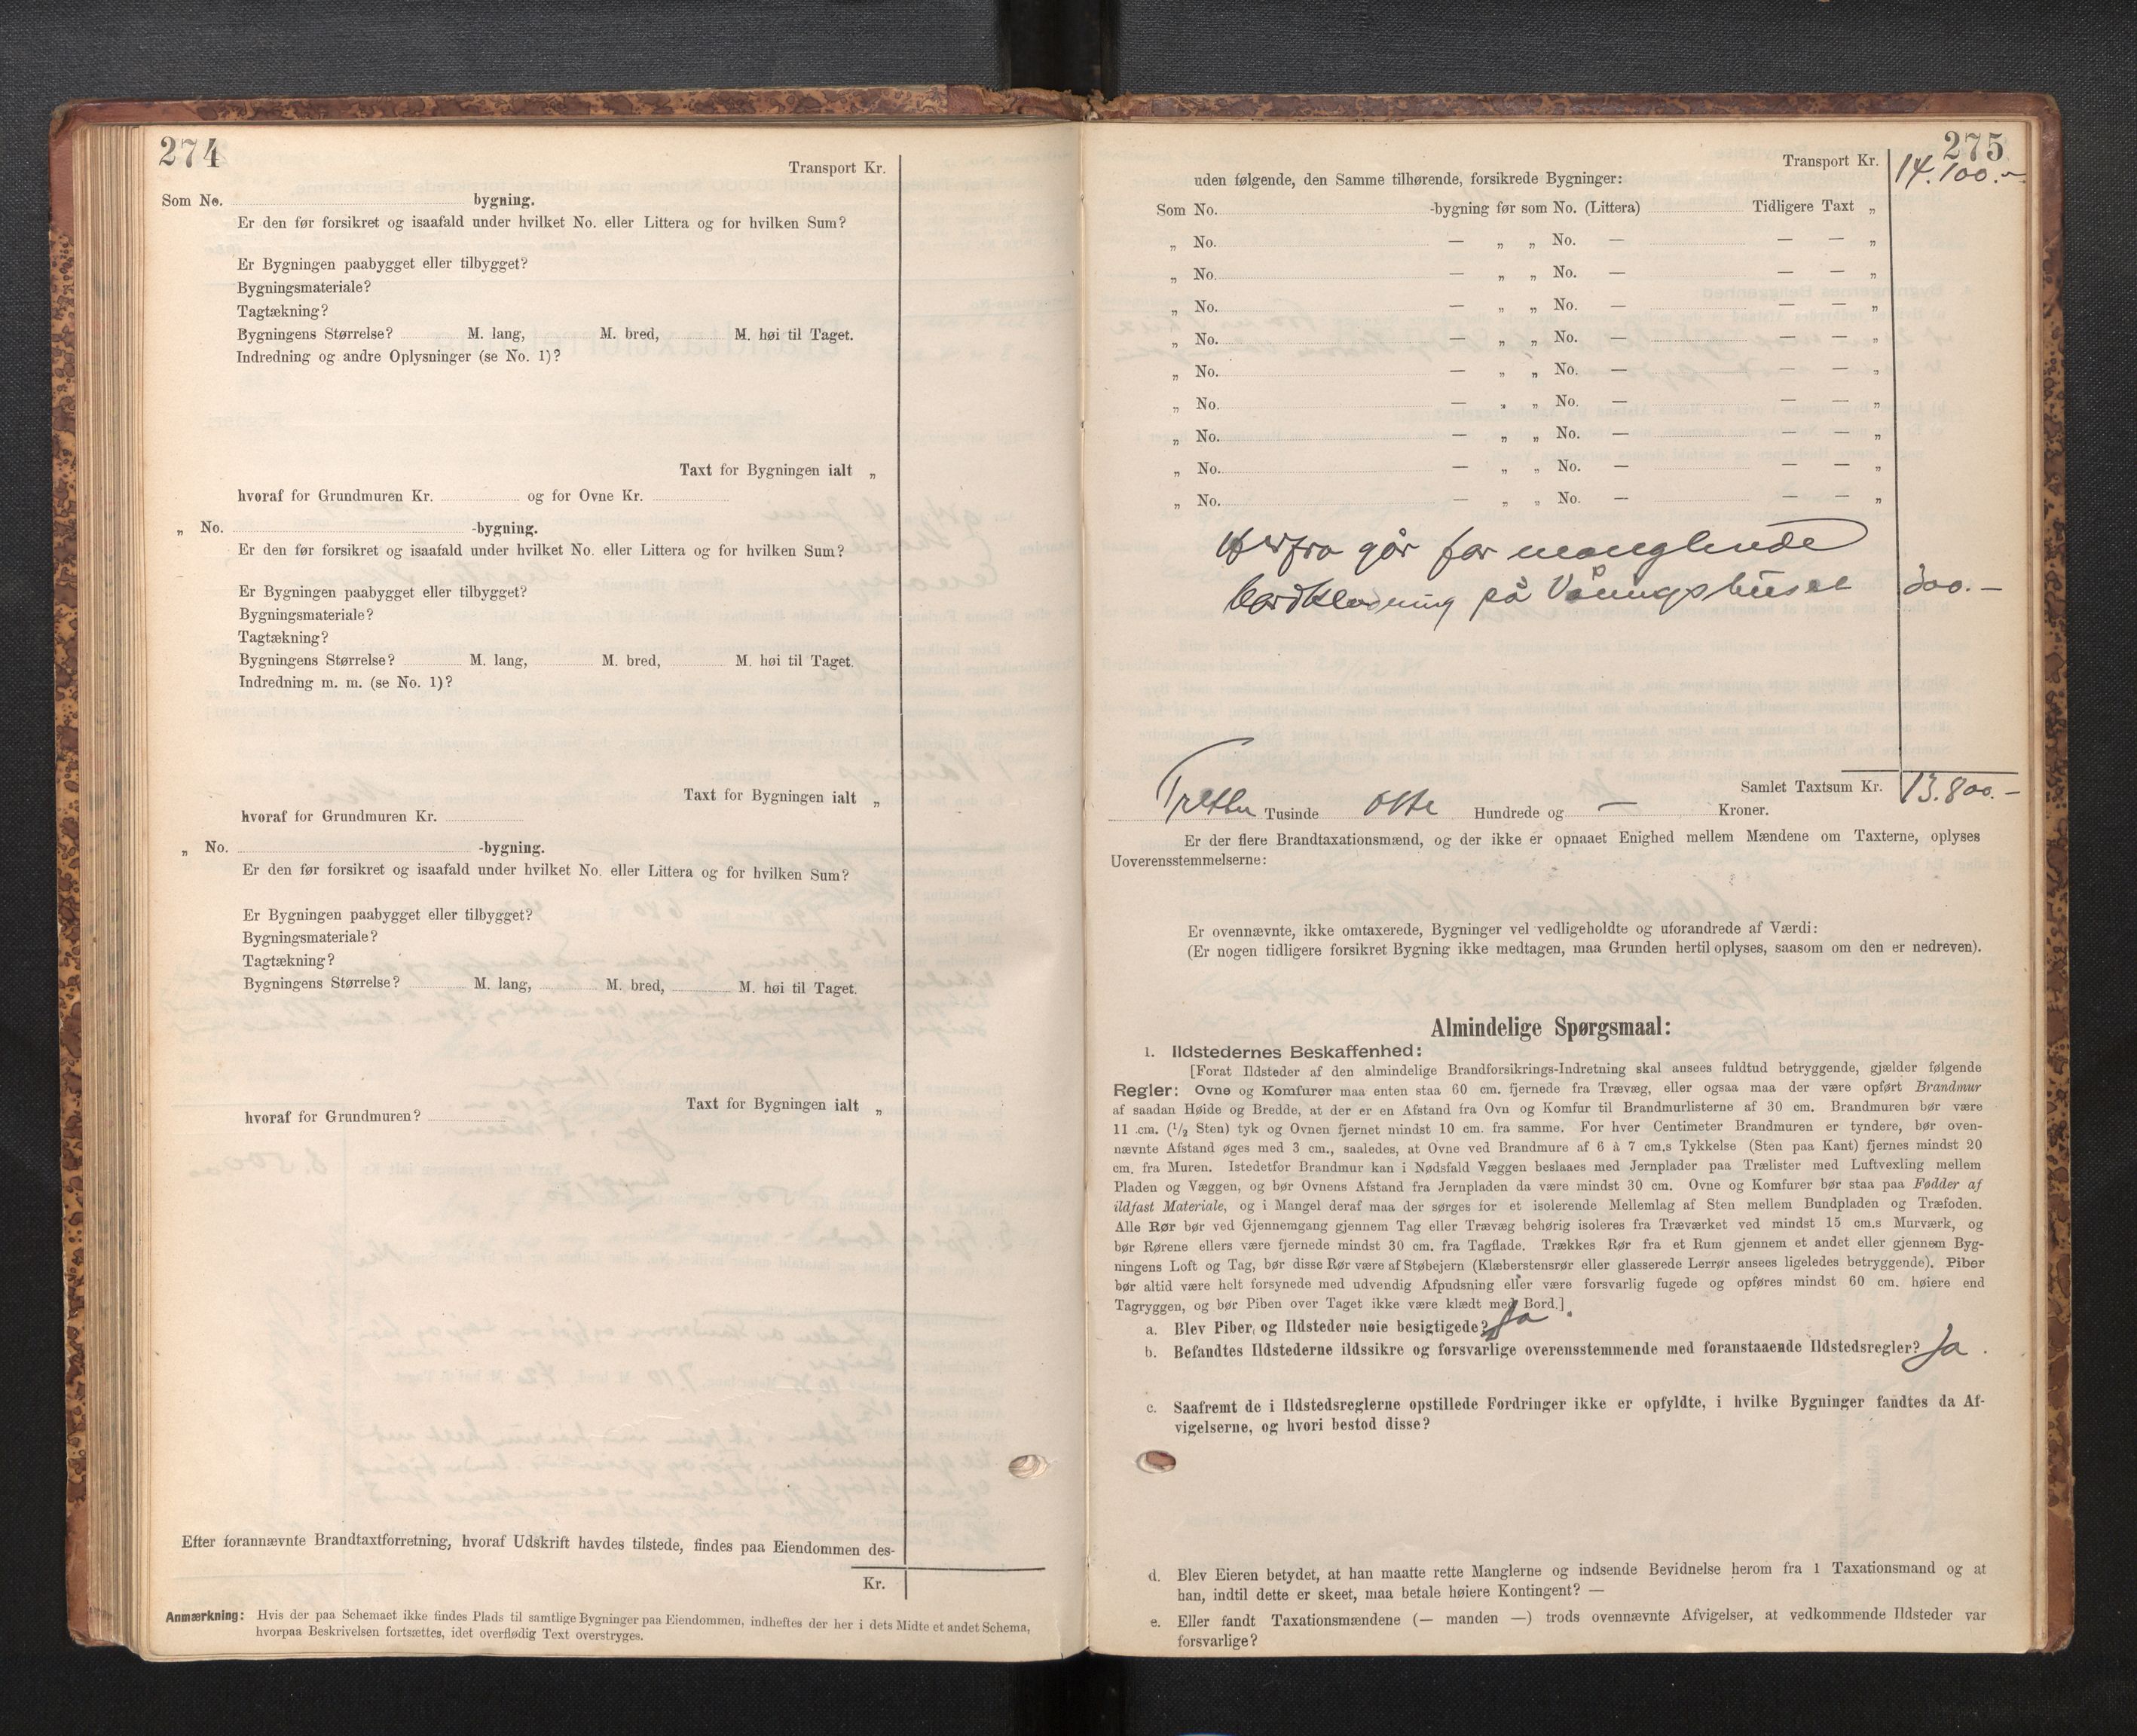 274
Transport Kr.
Som No. bygning.
Er den før forsikret og isaafald under hvilket No. eller Littera og for hvilken Sum?
Er Bygningen paabygget eller tilbygget?
Bygningsmateriale?
Tagtækning?
Bygningens Størrelse? M. lang, M. bred, M. høi til Taget.
Indredning og andre Oplysninger (se No. 1)?
Taxt for Bygningen ialt „
hvoraf for Grundmuren Kr. og for Ovne Kr.
„ No. -bygning.
Er den før forsikret og isaafald under hvilket No. eller Littera og for hvilken Sum?
Er Bygningen paabygget eller tilbygget?
Bygningsmateriale?
Tagtækning?
Bygningens Størrelse? M. lang, M. bred, M. høi til Taget.
Indredning m. m. (se No. 1)?
Taxt for Bygningen ialt „
hvoraf for Grundmuren Kr.
„ No. -bygning.
Er den før forsikret og isaafald under hvilket No. eller Littera og for hvilken Sum?
Er Bygningen paabygget eller tilbygget?
Bygningsmateriale?
Tagtækning?
Bygningens Størrelse? M. lang, M. bred, M. høi til Taget.
Taxt for Bygningen ialt „
hvoraf for Grundmuren?
Efter forannævnte Brandtaxtforretning, hvoraf Udskrift havdes tilstede, findes paa Eiendommen des-
Kr.
Anmærkning: Hvis der paa Schemaet ikke findes Plads til samtlige Bygninger paa Eiendommen, indheftes der her i dets Midte et andet Schema,
hvorpaa Beskrivelsen fortsættes, idet overflødig Text overstryges.
275
Transport Kr. 14.100.-
uden følgende, den Samme tilhørende, forsikrede Bygninger:
Som No. -bygning før som No. (Littera) Tidligere Taxt „
„ No. — „ „ No. — — — „
„ No. — „ „ No. — — — „
„ No. — „ „ No. — — — „
„ No. — „ „ No. — — — „
„ No. — „ „ No. — — — „
„ No. — „ „ No. — — — „
„ No. — „ „ No. — — — „
„ No. — „ „ No. — — — „
„ No. — „ „ No. — — — „
Herfra går for manglende
bordklædning på Våningshuset 300.-
Samlet Taxtsum Kr. 13.800.-
Tretten Tusinde otte Hundrede og — Kroner.
Er der flere Brandtaxationsmænd, og der ikke er opnaaet Enighed mellem Mændene om Taxterne, oplyses
Uoverensstemmelserne:
Er ovennævnte, ikke omtaxerede, Bygninger vel vedligeholdte og uforandrede af Værdi:
(Er nogen tidligere forsikret Bygning ikke medtagen, maa Grunden hertil oplyses, saasom om den er nedreven).
Almindelige Spørgsmaal:
1. Ildstedernes Beskaffenhed:
[Forat Ildsteder af den almindelige Brandforsikrings-Indretning skal ansees fuldtud betryggende, gjælder følgende
Regler: Ovne og Komfurer maa enten staa 60 cm. fjernede fra Trævæg, eller ogsaa maa der være opført Brandmur
af saadan Høide og Bredde, at der er en Afstand fra Ovn og Komfur til Brandmurlisterne af 30 cm. Brandmuren bør være
11 cm. (1/2 Sten) tyk og Ovnen fjernet mindst 10 cm. fra samme. For hver Centimeter Brandmuren er tyndere, bør oven-
nævnte Afstand øges med 3 cm., saaledes, at Ovne ved Brandmure af 6 à 7 cm.s Tykkelse (Sten paa Kant) fjernes mindst 20
cm. fra Muren. Istedetfor Brandmur kan i Nødsfald Væggen beslaaes med Jernplader paa Trælister med Luftvexling mellem
Pladen og Væggen, og bør Ovnens Afstand fra Jernpladen da være mindst 30 cm. Ovne og Komfurer bør staa paa Fødder af
ildfast Materiale, og i Mangel deraf maa der sørges for et isolerende Mellemlag af Sten mellem Bundpladen og Træfoden.
Alle Rør bør ved Gjennemgang gjennem Tag eller Trævæg behørig isoleres fra Træværket ved mindst 15 cm.s Murværk, og
bør Rørene ellers være fjernede mindst 30 cm. fra Tagflade. Trækkes Rør fra et Rum gjennem et andet eller gjennem Byg-
ningens Loft og Tag, bør disse Rør være af Støbejern (Klæberstensrør eller glasserede Lerrør ansees ligeledes betryggende). Piber
bør altid være helt forsynede med udvendig Afpudsning eller være forsvarlig fugede og opføres mindst 60 cm. høiere end
Tagryggen, og bør Piben over Taget ikke være klædt med Bord.]
a. Blev Piber og Ildsteder nøie besigtigede? Ja
b. Befandtes Ildstederne ildssikre og forsvarlige overensstemmende med foranstaaende Ildstedsregler? Ja.
c. Saafremt de i Ildstedsreglerne opstillede Fordringer ikke er opfyldte, i hvilke Bygninger fandtes da Af-
vigelserne, og hvori bestod disse?
d. Blev Eieren betydet, at han maatte rette Manglerne og indsende Bevidnelse herom fra 1 Taxationsmand og at
han, indtil dette er skeet, maa betale høiere Kontingent? —
e. Eller fandt Taxationsmændene (— manden —) trods ovennævnte Afvigelser, at vedkommende Ildsteder var
forsvarlige?